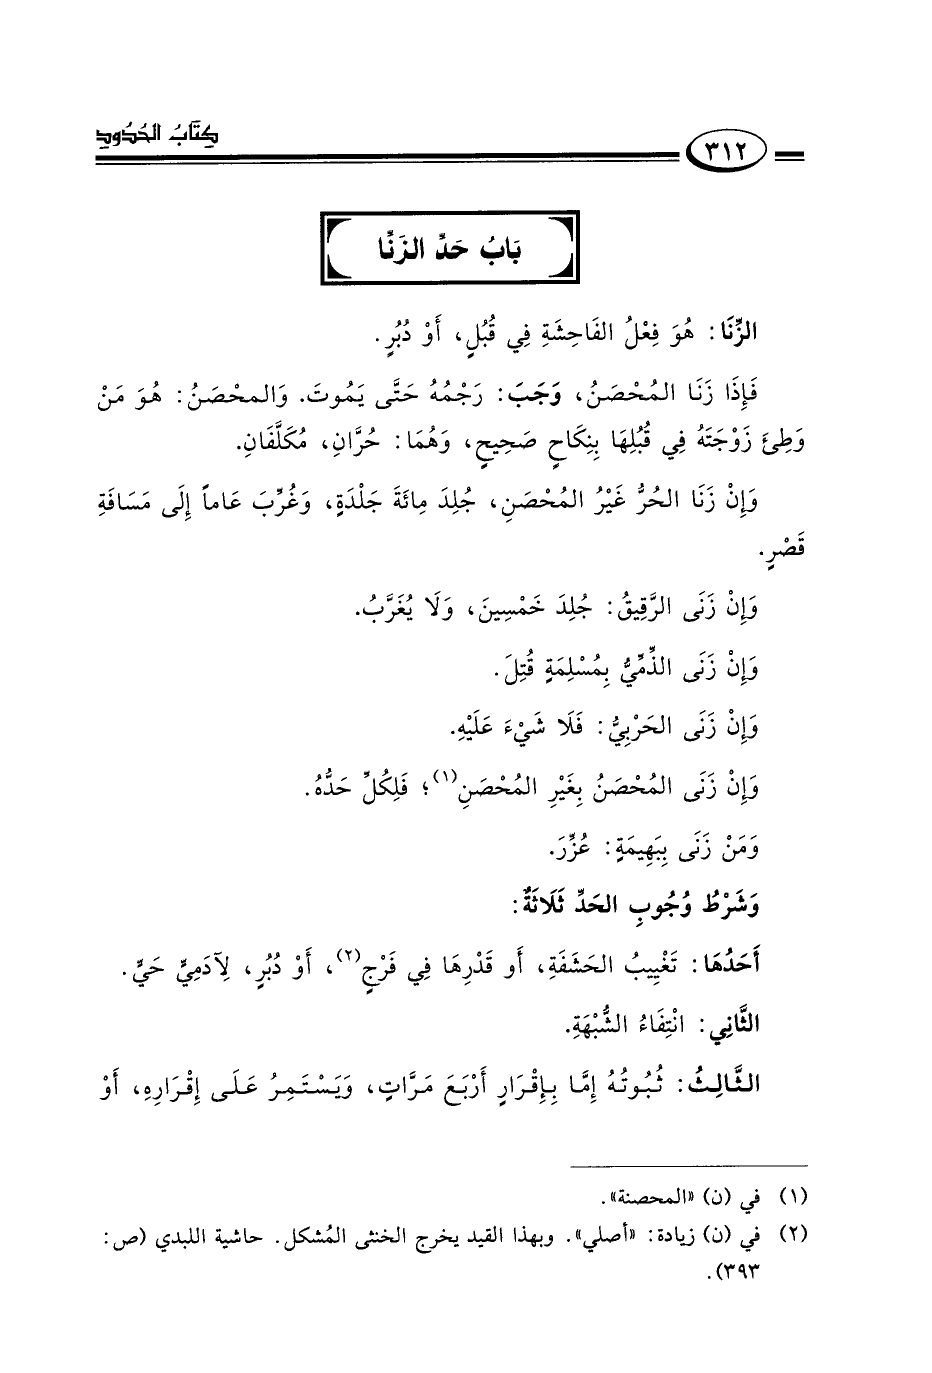 كِتَابُ الحُدُودِ
٣١٢
بَابُ حَدِّ الزِّنَا
الزِّنَا: هُوَ فِعْلُ الفَاحِشَةِ فِي قُبُلٍ، أَوْ دُبُرٍ.
فَإِذَا زَنَا المُحْصَنُ، وَجَبَ: رَجْمُهُ حَتَّى يَمُوتَ. وَالمحْصَنُ: هُوَ مَنْ
وَطِئَ زَوْجَتَهُ فِي قُبُلِهَا بِنِكَاحٍ صَحِيحٍ، وَهُمَا: حُرَّانِ، مُكَلَّفَانِ.
وَإِنْ زَنَا الحُرُّ غَيْرُ المُحْصَنِ، جُلِدَ مِائَةَ جَلْدَةٍ، وَغُرِّبَ عَاماً إِلَى مَسَافَةِ
قَصْرٍ.
وَإِنْ زَنَى الرَّقِيقُ: جُلِدَ خَمْسِينَ، وَلَا يُغَرَّبُ.
وَإِنْ زَنَى الذِّمِّيُّ بِمُسْلِمَةٍ قُتِلَ.
وَإِنْ زَنَى الحَرْبِيُّ: فَلَا شَيْءَ عَلَيْهِ.
وَإِنْ زَنَى المُحْصَنُ بِغَيْرِ المُحْصَنِ(١)؛ فَلِكُلٍّ حَدُّهُ.
وَمَنْ زَنَى بِبَهِيمَةٍ: عُزِّرَ.
وَشَرْطُ وُجُوبِ الحَدِّ ثَلَاثَةٌ:
أَحَدُهَا: تَغْيِيبُ الحَشَفَةِ، أَو قَدْرِهَا فِي فَرْجٍ(٢)، أَوْ دُبُرٍ، لِآدَمِيٍّ حَيٍّ.
الثَّانِي: انْتِفَاءُ الشُّبْهَةِ.
الثَّالِثُ: ثُبُوتُهُ إِمَّا بِإِقْرَارٍ أَرْبَعَ مَرَّاتٍ، وَيَسْتَمِرُ عَلَى إِقْرَارِهِ، أَوْ
(١) في (ن) «المحصنة».
(٢) في (ن) زيادة: «أصلي». وبهذا القيد يخرج الخنثى المُشكل. حاشية اللبدي (ص:
٣٩٣).